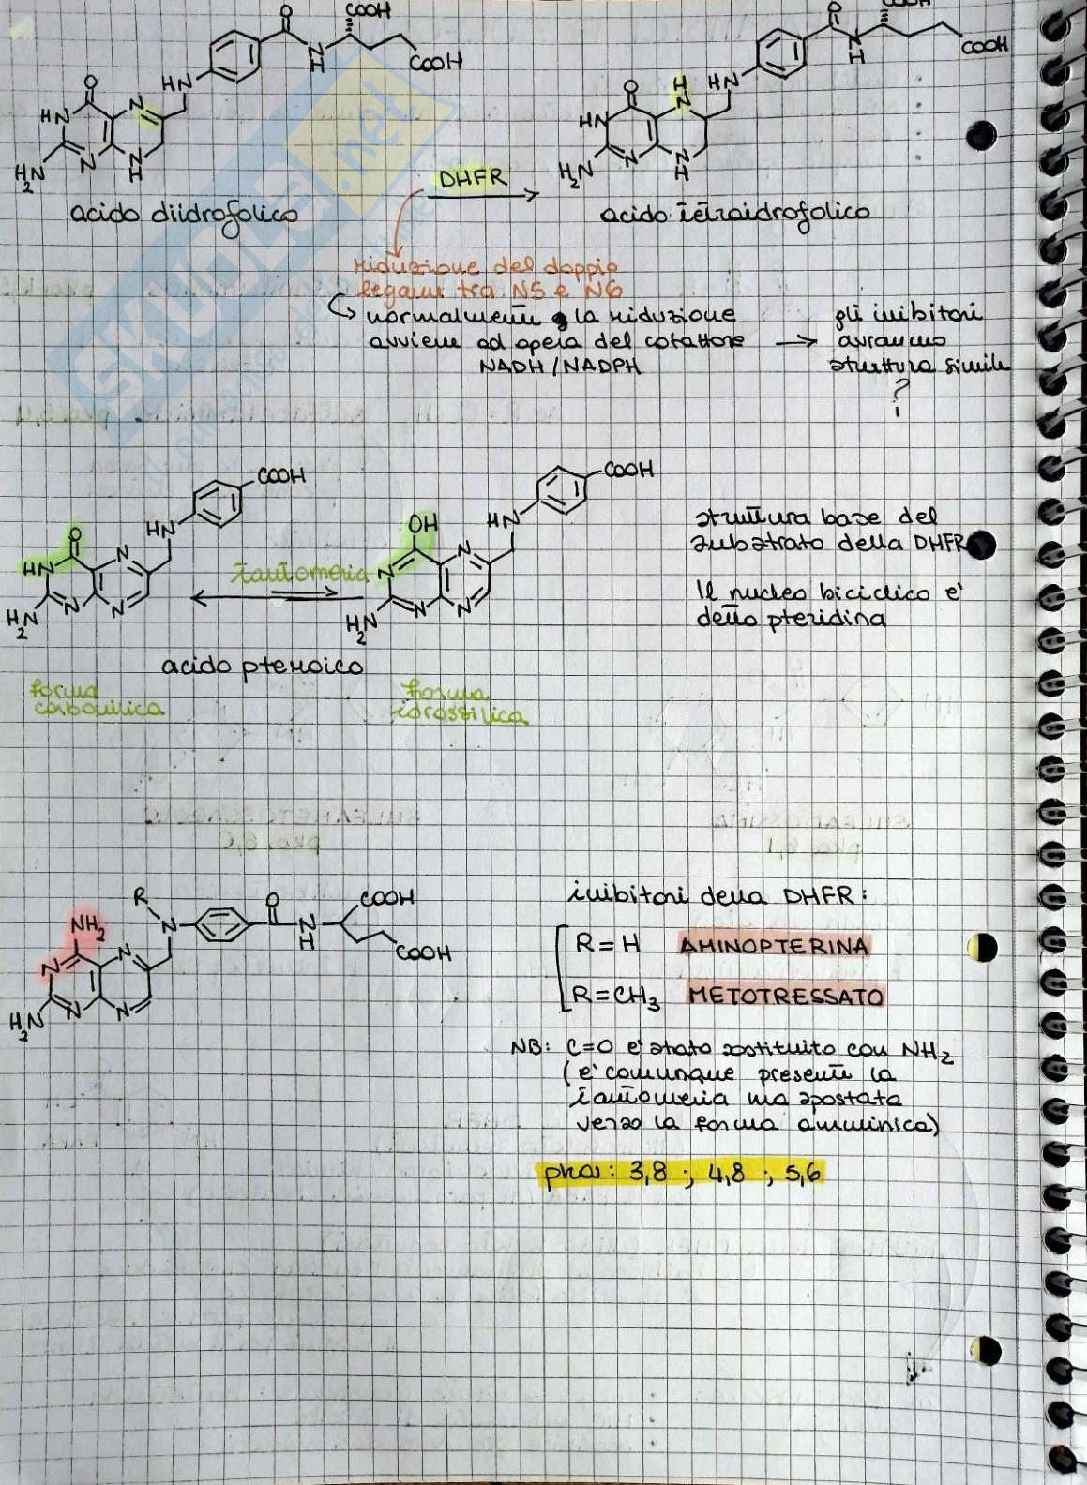 COOH
O
N
H
COOH
HN
O
HN
N
N
N
H
H₂N
acido diidrofolico
DHFR
COOH
O
N
H
COOH
HN
O
HN
H
N
N
N
H
H₂N
acido tetraidrofolico
riduzione del doppio
legame tra N5 e N6
normalmente la riduzione
avviene ad opera del cofattore
NADH/NADPH
gli inibitori
avranno
struttura simile
?
SKUOLA.net
COOH
HN
O
HN
N
N
N
H₂N
tautomeria
COOH
HN
OH
N
N
N
N
H₂N
acido pteroico
forma
carbonilica
forma
idrossilica
struttura base del
substrato della DHFR
Il nucleo biciclico e'
detto pteridina
R
NH₂
N
O
N
H
COOH
COOH
N
N
N
N
H₂N
inibitori della DHFR:
R = H AMINOPTERINA
R = CH₃ METOTRESSATO
NB: C=O e' stato sostituito con NH₂
(e' comunque presente la
tautomeria ma spostata
verso la forma amminica)
pka: 3,8 ; 4,8 ; 5,6